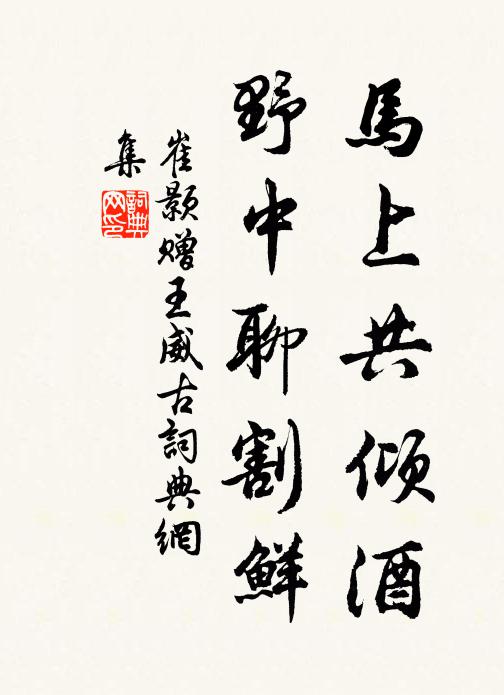 馬上共傾酒
野中聊割鮮
崔颢赠王威古詞典網
集
詞典
网印